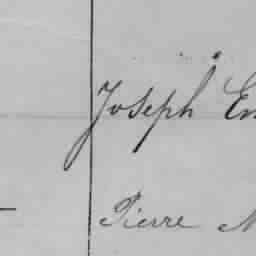 Joseph En
Pierre N